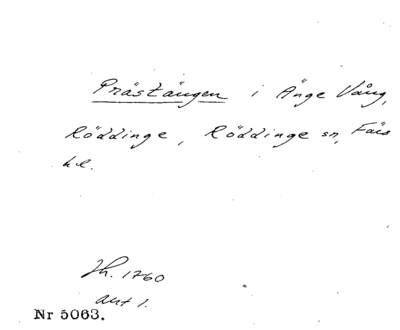 Prästängen i Änge Vång,
Röddinge, Röddinge sn, Färs
hd.
Jh. 1760
akt 1.
Nr 5063.